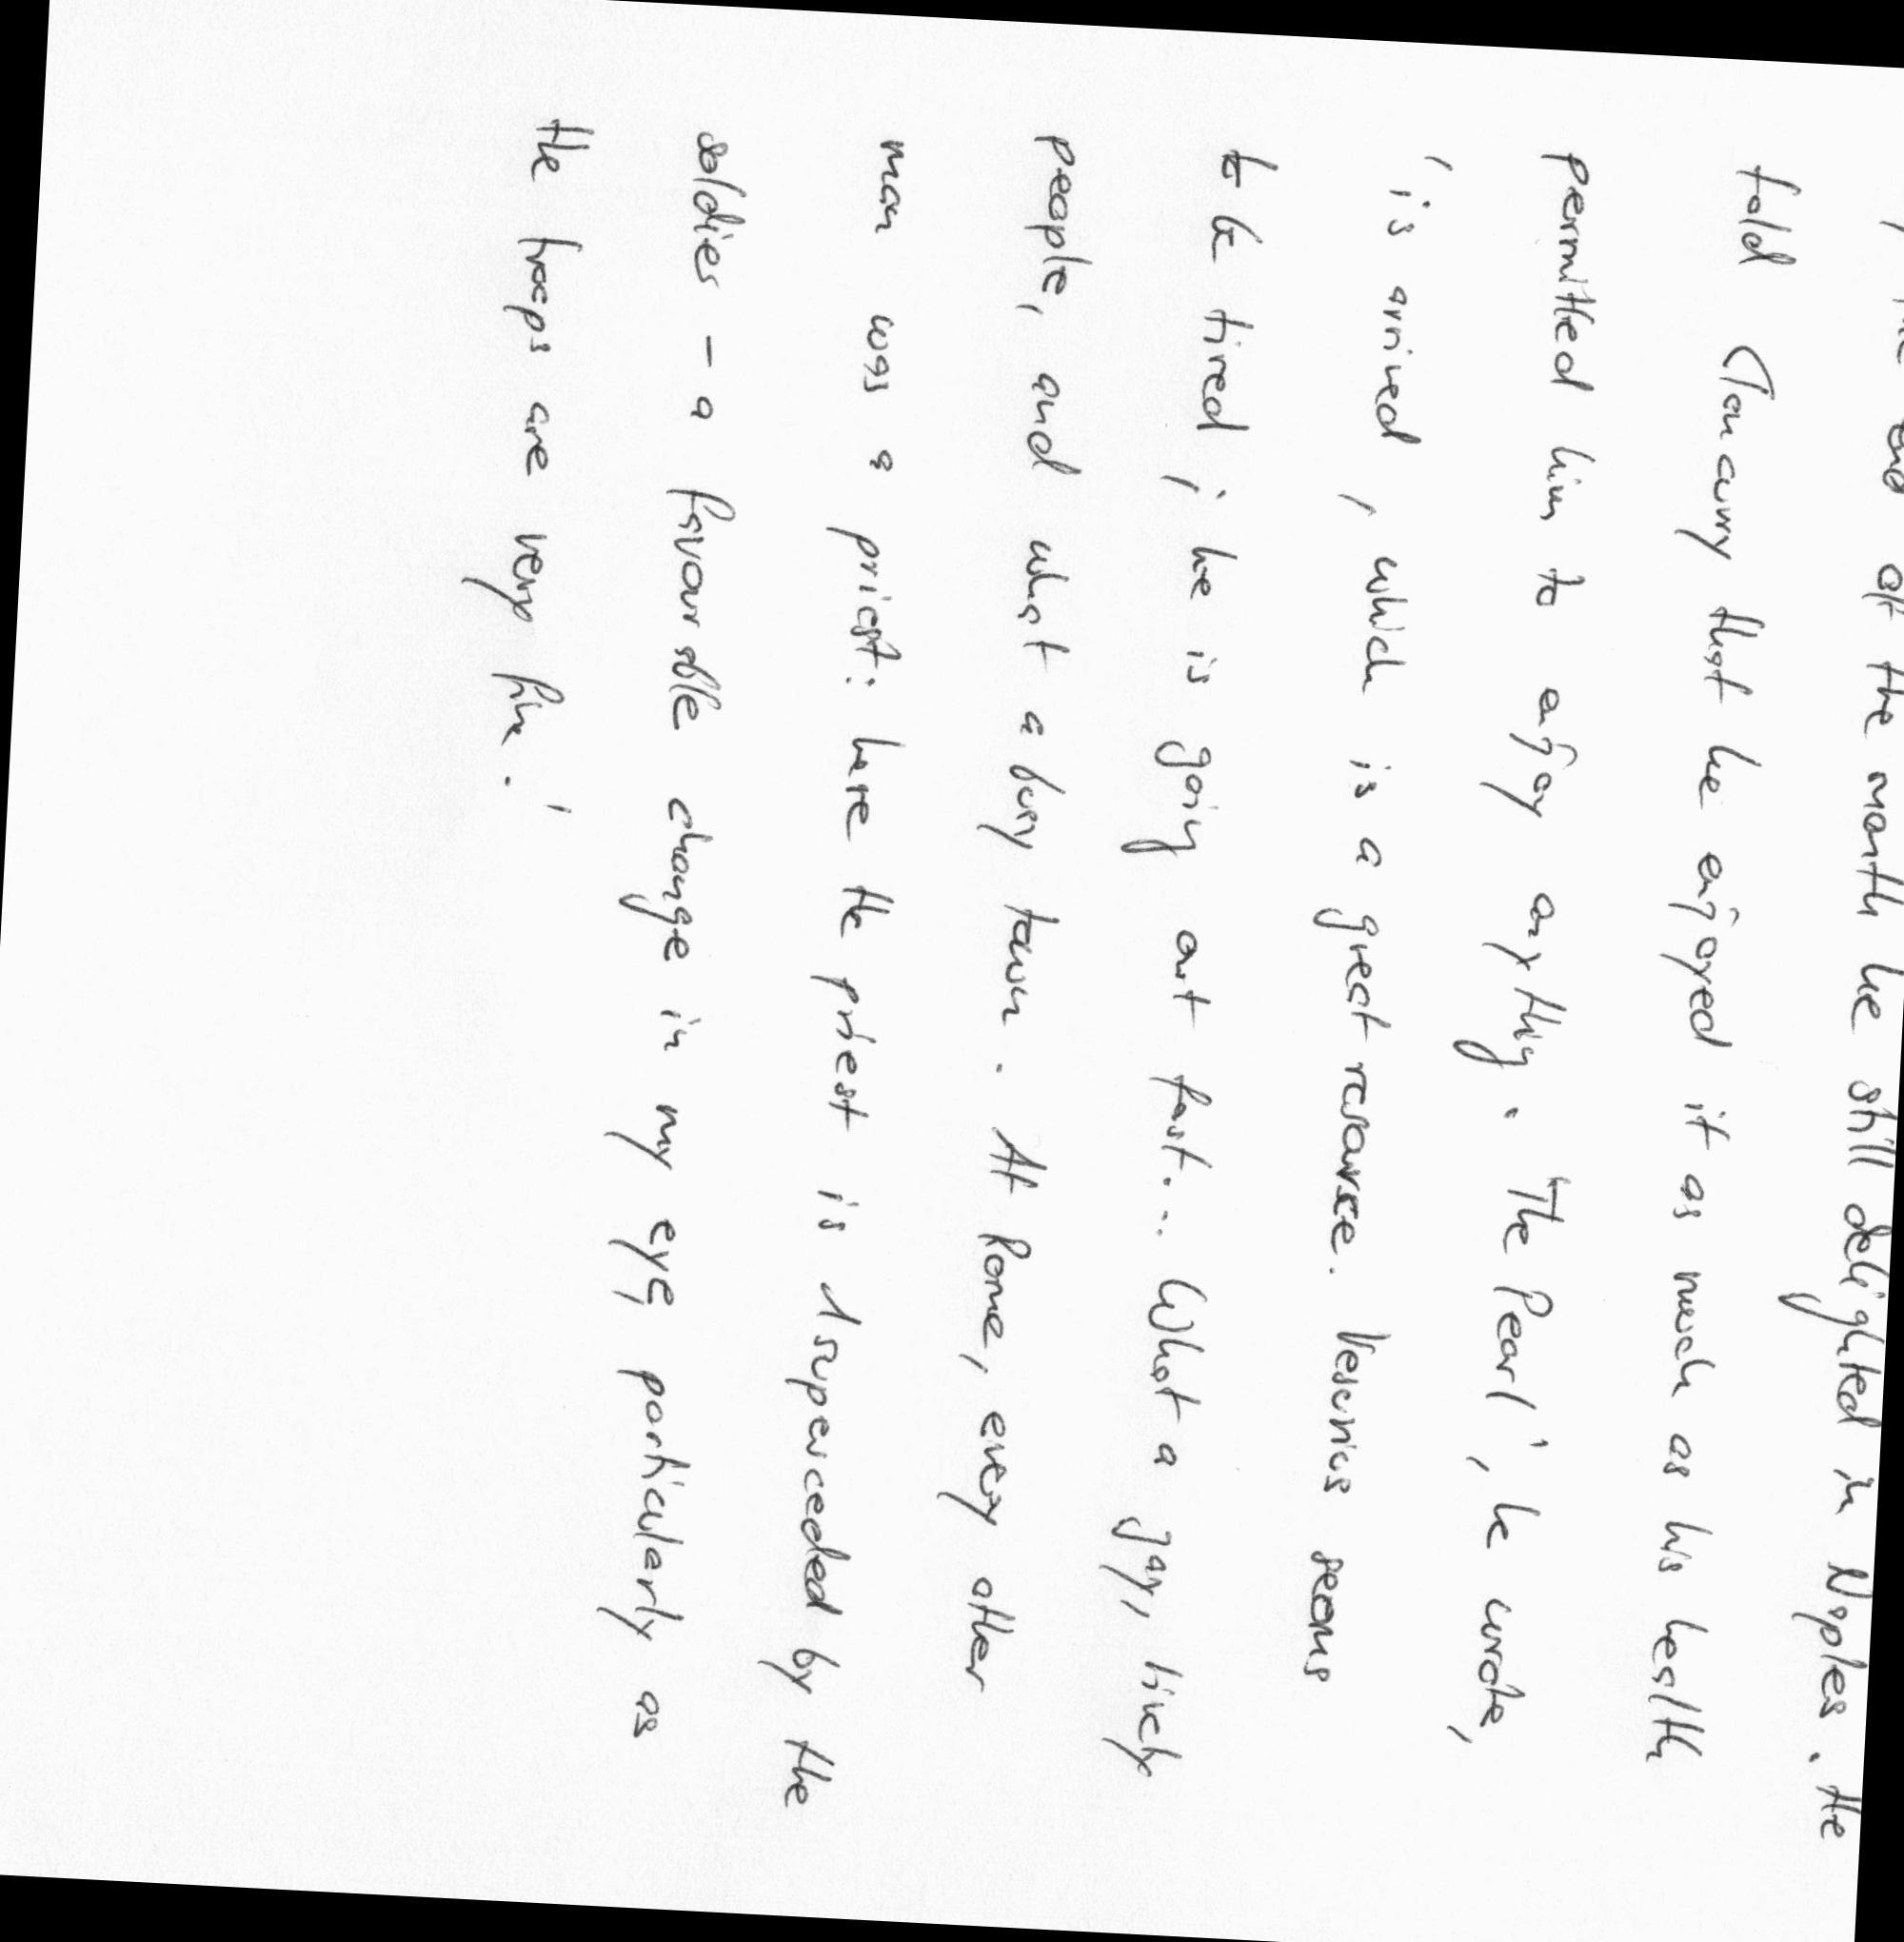 end of the month he still delighted in Naples. He
told Clancurry that he enjoyed it as much as his health
permitted him to enjoy anything. 'The Pearl', he wrote,
' is arrived, which is a great resource. Vesuvius seems
to be tired; he is going out fast... What a gay, lively
people, and what a busy town. At Rome, every other
man was a priest: here the priest is superceded by the
soldies - a favourable change in my eye, particularly as
the troops are very fine.'